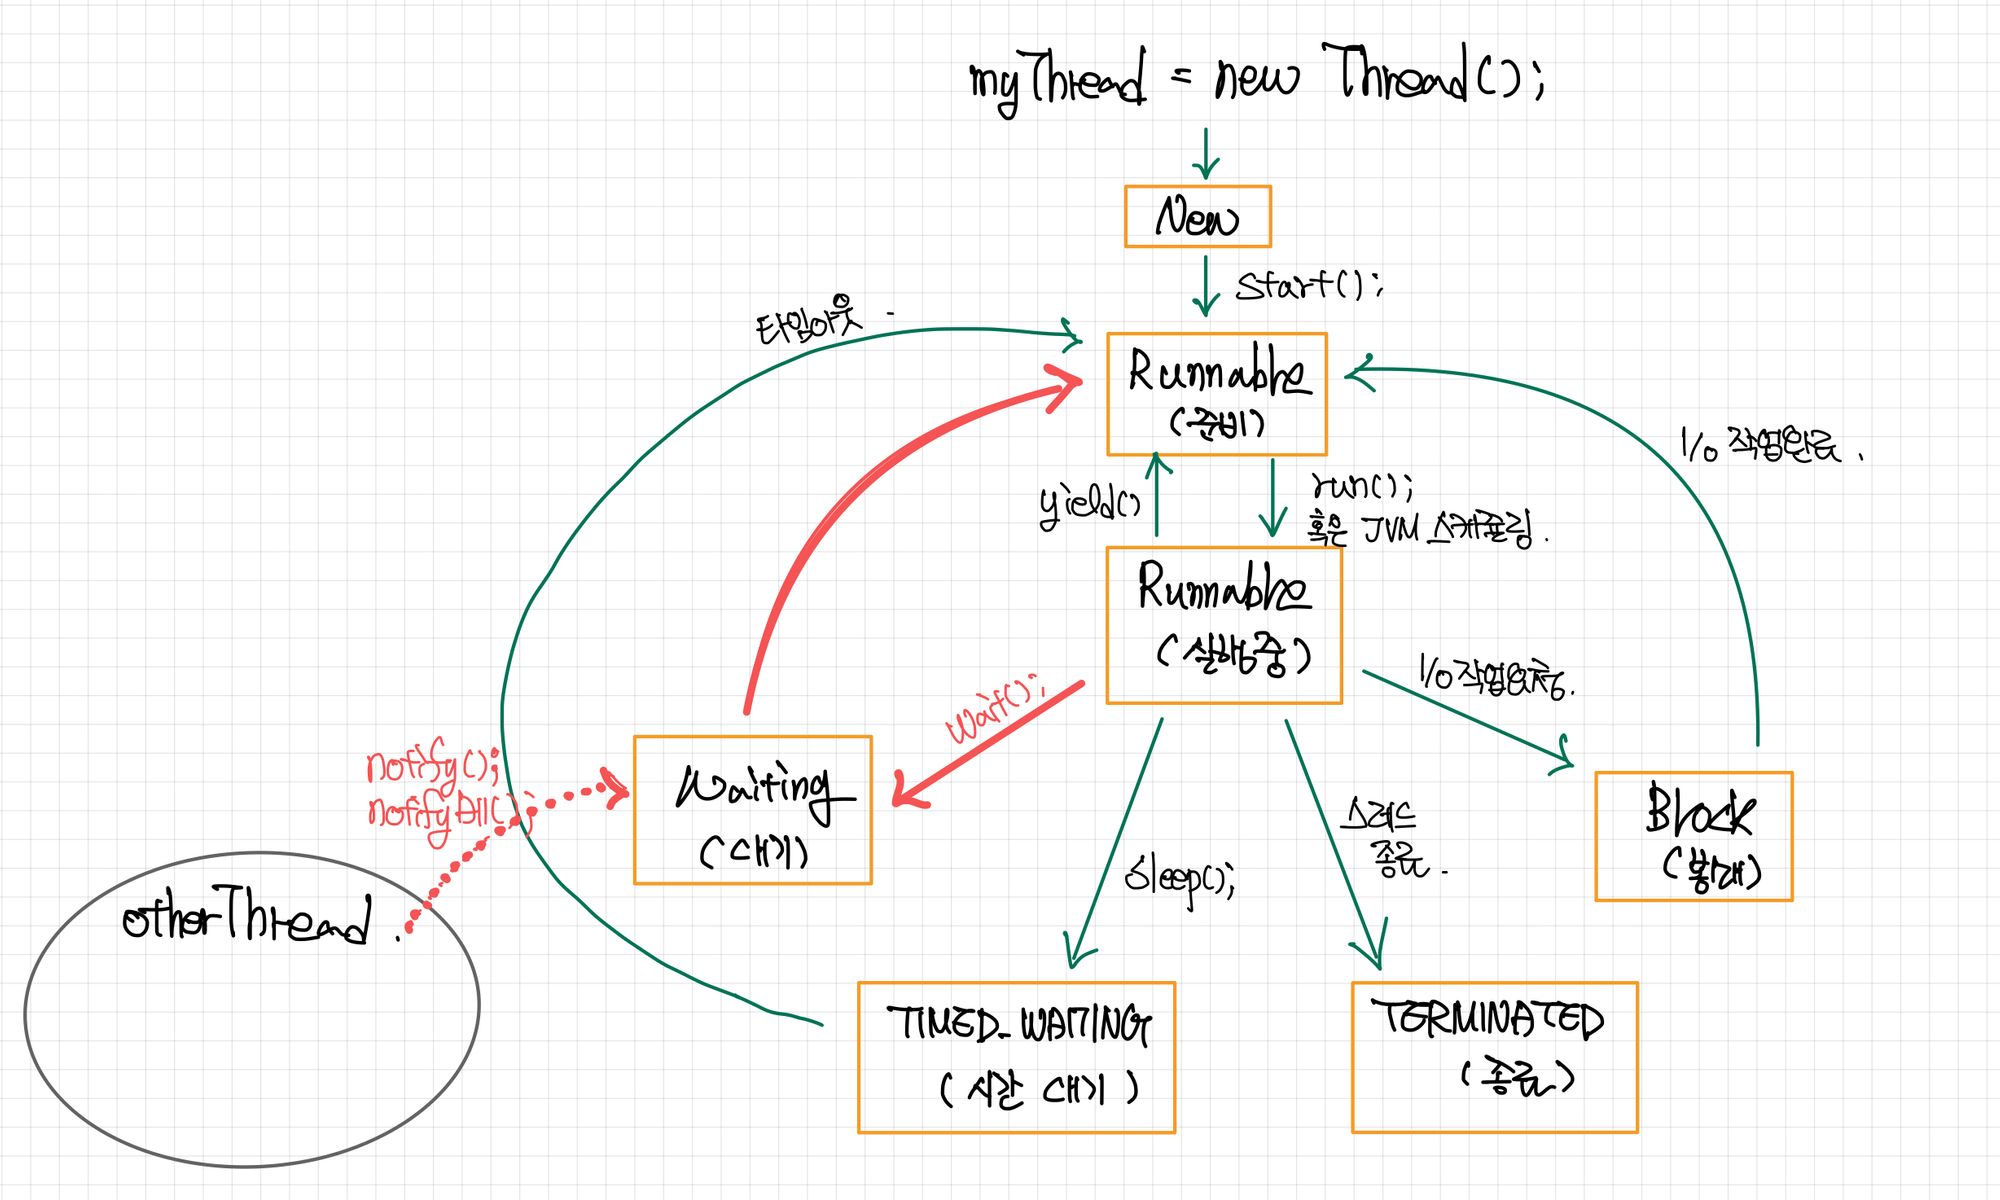 myThread = new Thread();
New
start();
타임아웃
Runnable
(준비)
I/O 작업완료.
yield()
run();
혹은 JVM 스케쥴링.
Runnable
(실행중)
I/O 작업요청.
wait();
notify();
notifyAll();
Waiting
(대기)
스레드
종료.
Block
(봉쇄)
sleep();
otherThread.
TIMED_WAITING
(시간 대기)
TERMINATED
(종료)